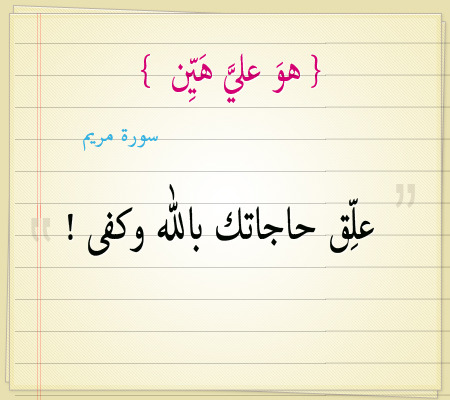 { هوَ عليَّ هَيِّن }
سورة مريم
" علِّق حاجاتك بالله وكفى ! "